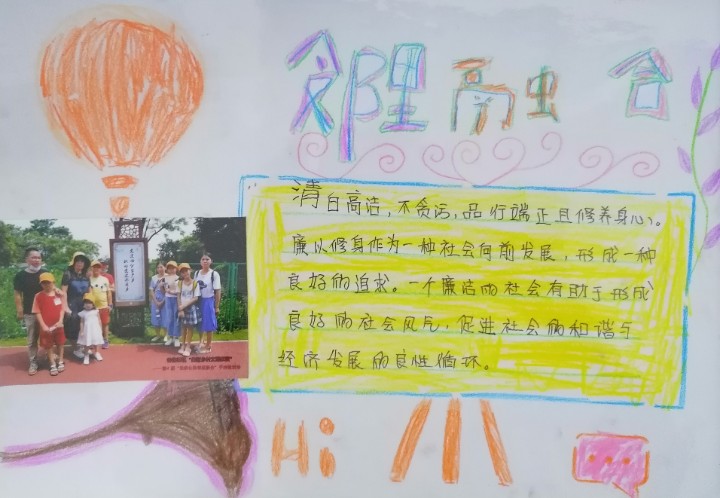 邻里融合
清白高洁，不贪污，品行端正且修养身心。
廉以修身作为一种社会向前发展，形成一种
良好的追求。一个廉洁的社会有助于形成
良好的社会风气，促进社会的和谐与
经济发展的良性循环。
Hi